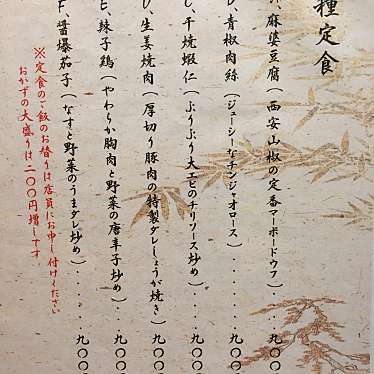 種定食
A、麻婆豆腐（西安山椒の定番マーボードウフ）....九〇〇
B、青椒肉絲（ジューシーなチンジャオロース）.....九〇〇
C、干焼蝦仁（ぷりぷり大エビのチリソース炒め）....九〇〇
D、生姜焼肉（厚切り豚肉の特製ダレしょうが焼き）..九〇〇
E、辣子鶏（やわらか胸肉と野菜の唐辛子炒め）....九〇〇
F、醤爆茄子（なすと野菜のうまダレ炒め）......九〇〇
※定食のご飯のお替りは店員にお申し付けください
おかずの大盛りは二〇〇円増しです